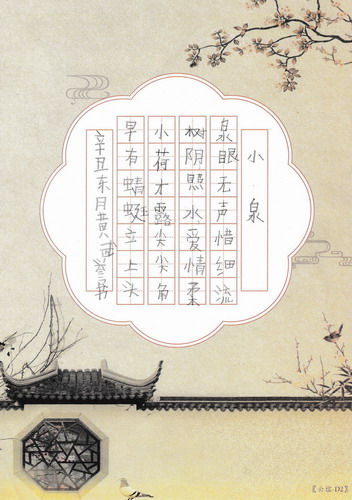 小泉
泉眼无声惜细流
树阴照水爱情柔
小荷才露尖尖角
早有蜻蜓立上头
辛丑东月黄书
D2